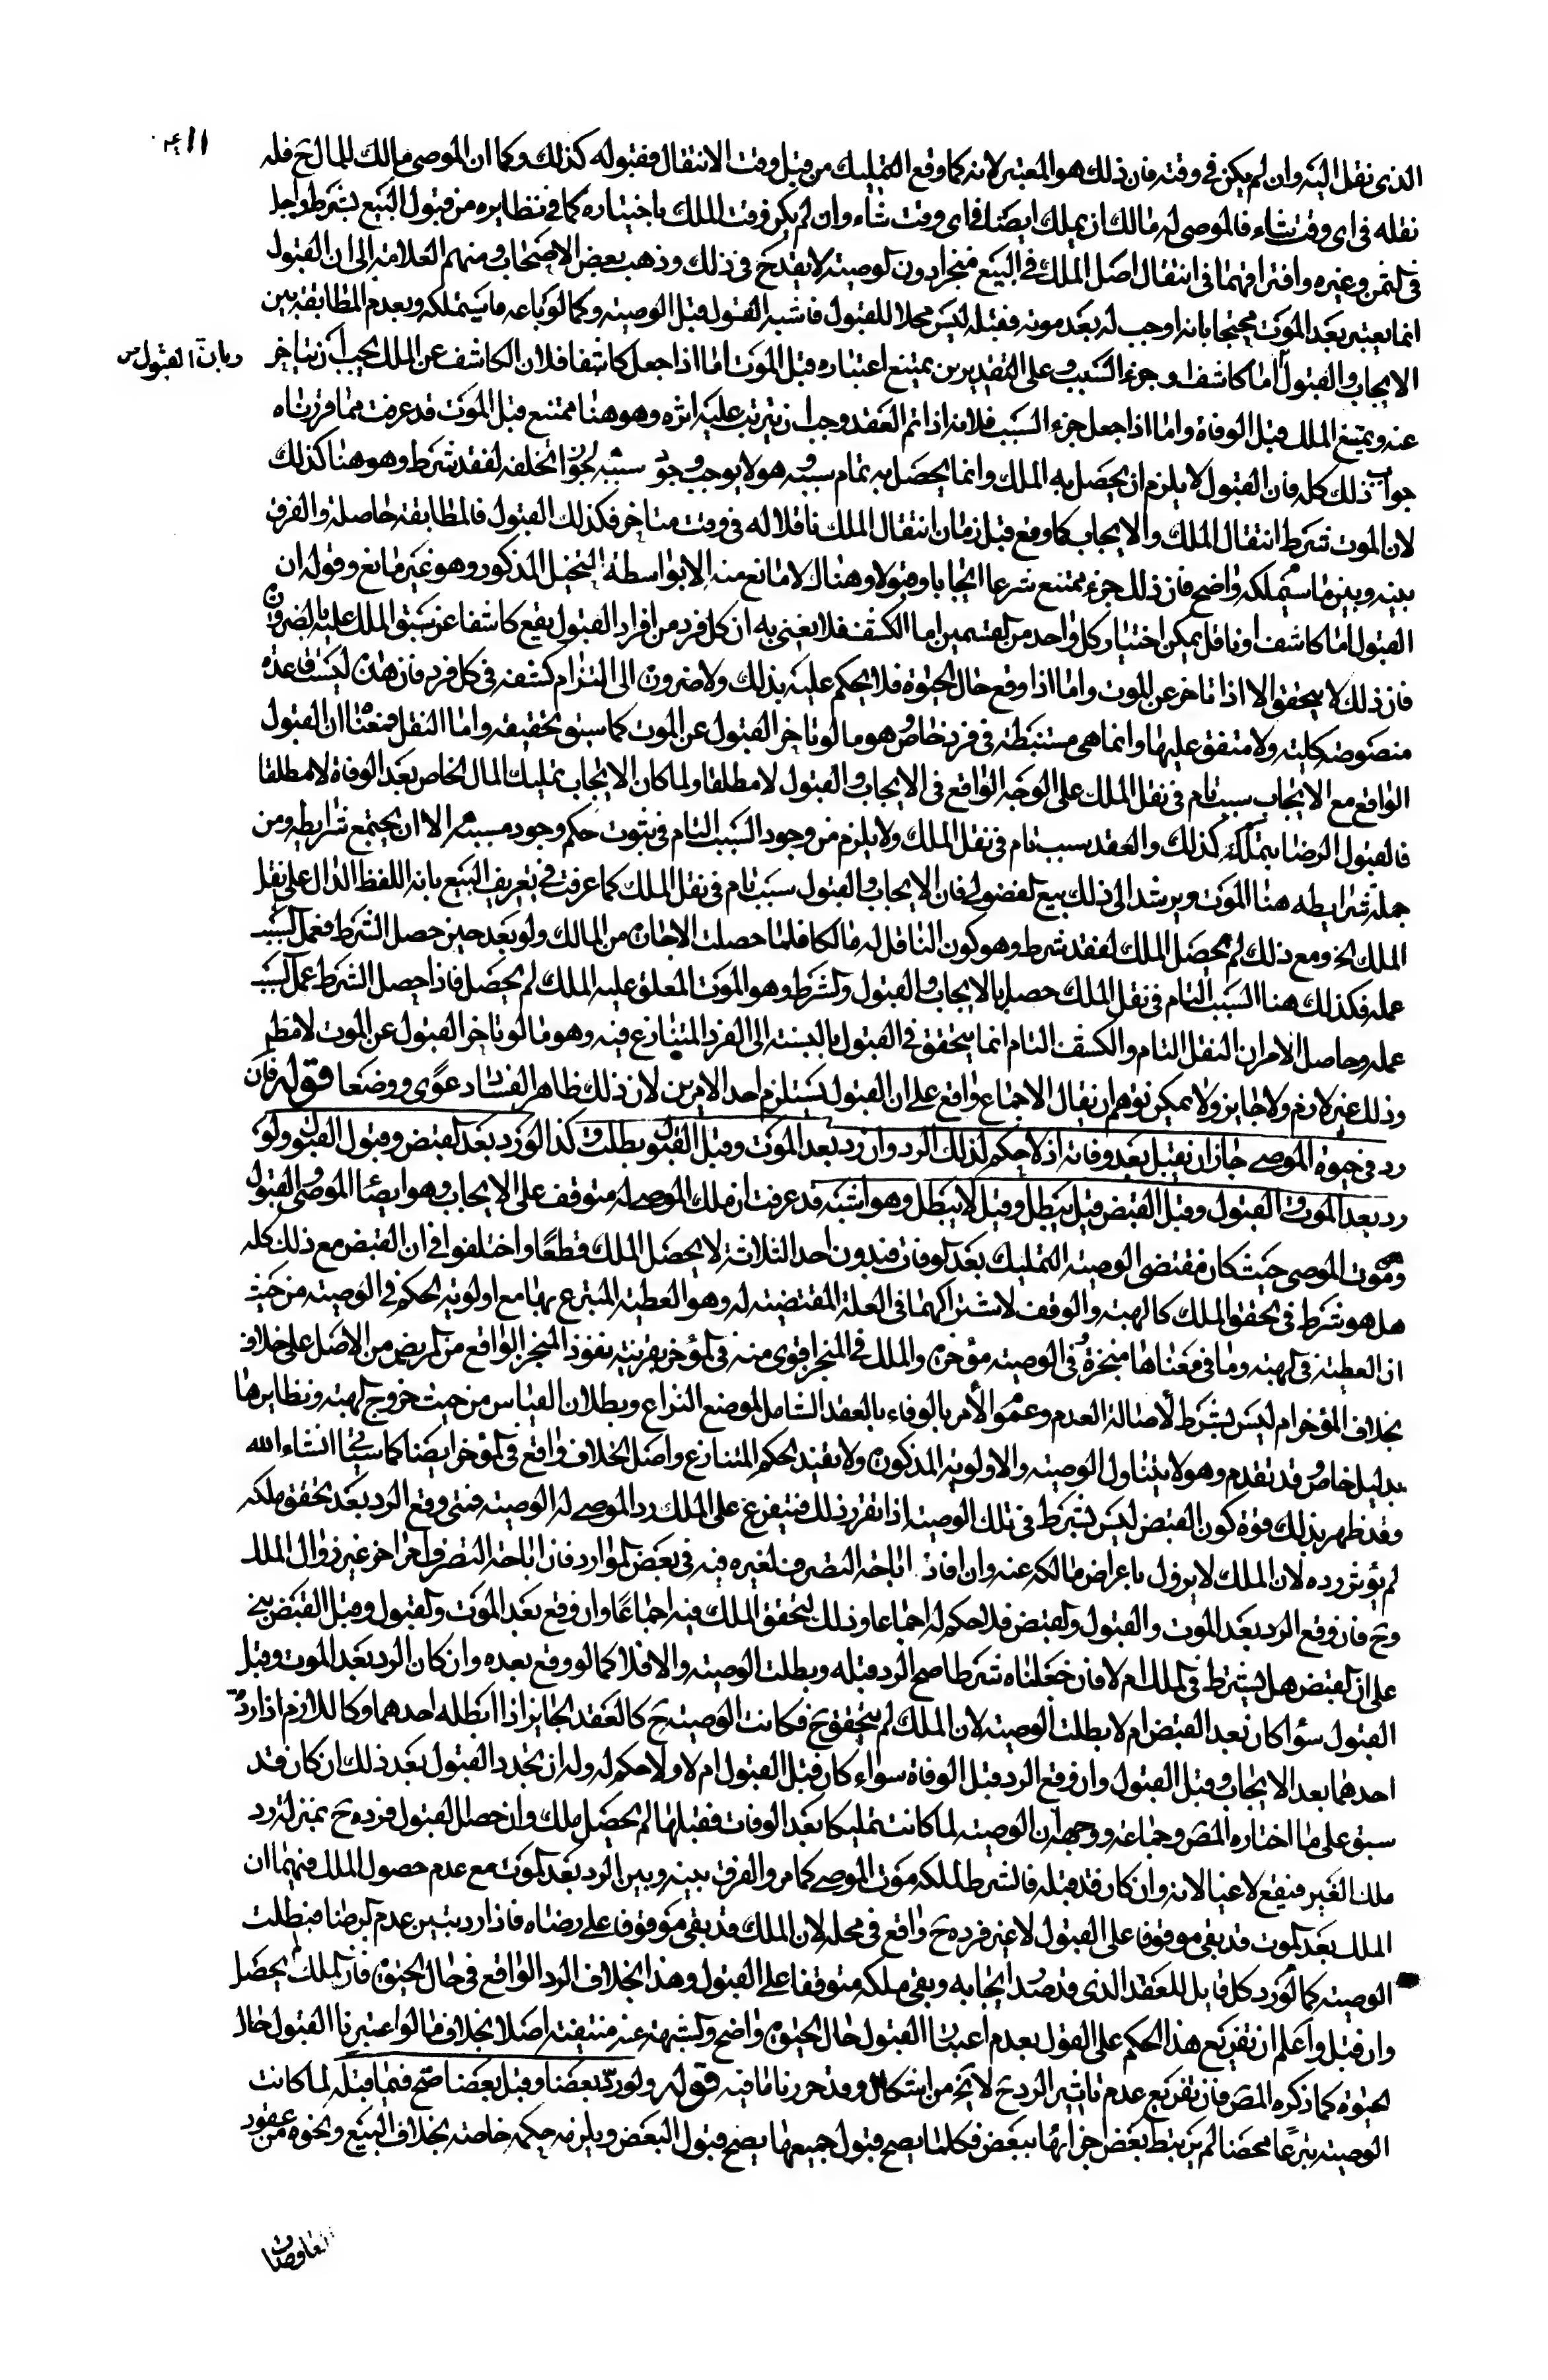 الذى نقل اليه وان لم يكن فى وقته فان ذلك هو المعتبر لانه كما وقع التمليك من قبل وقت الانتقال فقبوله كذلك وكما ان الموصى مالك للمال ح فله
نقله فى اى وقت شاء فالموصى له مالك ان يملك ايضا فى اى وقت شاء وان لم يكن وقت الملك باختياره كما فى نظايره من قبول البيع بشرط واجل
فى الثمن وغيره وافتراقهما فى انتقال اصل الملك فى البيع منجزا دون الوصية لا يقدح فى ذلك وذهب بعض الاصحاب ومنهم العلامة الى ان القبول
انما يعتبر بعد الموت محتجا بانه اوجب له بعد موته فقبله ليس محلا للقبول فاشبه القبول قبل الوصية وكما لو باعه ما سيتملكه وبعدم المطابقة بين
الايجاب والقبول اما كاشف او جزء السبب وعلى التقديرين يمتنع اعتباره قبل الموت اما اذا جعل كاشفا فلان الكاشف عن الملك يجب ان يتاخر
وبان القبول
عنه ويمتنع الملك قبل الوفاة واما اذا جعل جزء السبب فلانه اذا تم العقد وجب ان يترتب عليه اثره وهو هنا ممتنع قبل الموت قد عرفت مما قررناه
جواب ذلك كله فان القبول لا يلزم ان يحصل به الملك وانما يحصل به تمام سببه وهو لا يوجب وجود مسببه لجواز تخلفه لفقد شرط وهو هنا كذلك
لان الموت شرط انتقال الملك والايجاب كما وقع قبل زمان انتقال الملك ناقلا له فى وقت متاخر فكذلك القبول فالمطابقة حاصلة والفرق
بينه وبين ما سيتملكه واضح فان ذلك جزء ممتنع شرعا ايجابا وقبولا وهناك لا مانع منه الا بواسطة التخيل المذكور وهو غير مانع وقوله ان
القبول اما كاشف او ناقل يمكن اختيار كل واحد من القسمين اما الكشف فلا يعنى به ان كل فرد من افراد القبول يقع كاشفا عن سبق الملك عليه بالضرورة
فان ذلك لا يتحقق الا اذا تاخر عن الموت واما اذا وقع حال الحيوة فلا يحكم عليه بذلك ولا ضرورة الى التزام كشفه فى كل فرد فان هذه ليست قاعدة
منصوصة كلية ولا متفق عليها وانما هى مستنبطة فى فرد خاص وهو ما لو تاخر القبول عن الموت كما سبق تحقيقه واما النقل فمعناه ان القبول
الواقع مع الايجاب سبب تام فى نقل الملك على الوجه الواقع فى الايجاب والقبول لا مطلقا ولما كان الايجاب تمليك المال الخاص بعد الوفاة لا مطلقا
فالقبول الرضا بتملكه كذلك والعقد سبب تام فى نقل الملك ولا يلزم من وجود السبب التام فى ثبوت حكم وجود مسببه الا ان يجتمع شرايطه ومن
جملة شرايطه هنا الموت ويرشد الى ذلك بيع الفضولى فان الايجاب والقبول سبب تام فى نقل الملك كما عرفت فى تعريف البيع بانه اللفظ الدال على نقل
الملك الخ ومع ذلك لم يحصل الملك لفقد شرط وهو كون الناقل له مالكا فلما حصلت الاجازة من المالك ولو بعد حين حصل الشرط فعمل السبب
عمله فكذلك هنا السبب التام فى نقل الملك حصل بالايجاب والقبول والشرط وهو الموت المعلق عليه الملك لم يحصل فاذا حصل الشرط عمل السبب
عمله وحاصل الامر ان النقل التام والكشف التام انما يتحقق فى القبول بالنسبة الى الفرد المتنازع فيه وهو ما لو تاخر القبول عن الموت لا مطلقا
وذلك غير لازم ولا جايز ولا يمكن توهم ان يقال الاجماع واقع على ان القبول يستلزم احد الامرين لان ذلك ظاهر الفساد دعوى ووضعا قوله فان
رد فى حيوة الموصى جاز ان يقبل بعد وفاته اذ لا حكم لذلك الرد وان رد بعد الموت وقبل القبول بطلت وكذا لو رد بعد القبض وقبول القبول ولو
رد بعد الموت والقبول وقبل القبض قيل يبطل وقيل لا يبطل وهو اشبه قد عرفت ان ملك الموصى له متوقف على الايجاب وهو ايصاء الموصى والقبول
وموت الموصى حيث كان مقتضى الوصية التمليك بعد الوفاة فبدون احد الثلاثة لا يحصل الملك قطعا واختلفوا فى ان القبض مع ذلك كله
هل هو شرط فى تحقق الملك كالهبة والوقف لاشتراكهما فى العلة المقتضية له وهو العطية المتبرع بها مع اولوية الحكم فى الوصية من حيث
ان العطية فى الهبة وما فى معناها منجزة وفى الوصية مؤخرة والملك فى المنجز اقوى منه فى المؤخر بقرينة نفوذ المنجز الواقع من المريض من الاصل على خلاف
بخلاف المؤخر ام ليس بشرط لاصالة العدم وعموم الأمر بالوفاء بالعقد الشامل لموضع النزاع وبطلان القياس من حيث خروج الهبة ونظايرها
بدليل خاص وقد تقدم وهو لا يتناول الوصية والاولوية المذكورة ولا يفيد الحكم المتنازع واصل الخلاف واقع فى المؤخر ايضا كما سيجئ انشاء الله
وقد ظهر بذلك قوة كون القبض ليس بشرط فى تلك الوصية اذا تقرر ذلك فيتفرع على الملك رد الموصى له الوصية فمتى وقع الرد بعد تحقق ملكه
لم يؤثر رده لان الملك لا يزول باعراض مالكه عنه وان افاد اباحة التصرف لغيره فيه فى بعض الموارد فان اباحة التصرف امر اخر غير زوال الملك
وح فان وقع الرد بعد الموت والقبول والقبض فلا حكم له اجماعا وذلك لتحقق الملك فيه اجماعًا وان وقع بعد الموت والقبول وقبل القبض بنى
على ان القبض هل يشترط فى الملك ام لا فان جعلناه شرطا صح الرد قبله وبطلت الوصية والا فلا كما لو وقع بعده وان كان الرد بعد الموت وقبل
القبول سواء كان بعد القبض ام لا بطلت الوصية لان الملك لم يتحقق ح فكانت الوصية ح كالعقد الجايز اذا ابطله احدهما وكاللازم اذا رده
احدهما بعد الايجاب وقبل القبول وان وقع الرد قبل الوفاة سواء كان قبل القبول ام لا ولا حكم له وله ان يجدد القبول بعد ذلك ان كان قد
سبق على ما اختاره المص وجماعة ووجهه ان الوصية لما كانت تمليكا بعد الوفات فقبلها لم يحصل ملك وان حصل القبول فرده ح بمنزلة رد
ملك الغير فيقع لاغيا لانه وان كان قد قبله فالشرط لملكه موت الموصى كما مر والفرق بينه وبين الرد بعد الموت مع عدم حصول الملك فيهما ان
الملك بعد الموت قد بقى موقوفا على القبول لا غير فرده ح واقع فى محله لان الملك قد بقى موقوفا على رضاه فاذا رد تبين عدم الرضا فبطلت
الوصية كما لو رد كل قابل للعقد الذى قد صدر ايجابه وبقى ملكه متوقفا على القبول وهذا بخلاف الرد الواقع فى حال الحيوة فان الملك لم يحصل
وان قبل واعلم ان تفريع هذا الحكم على القول بعدم اعتبار القبول حال الحيوة واضح والشبهة عنه منتفية اصلا بخلاف ما لو اعتبرنا القبول حال
الحيوة كما ذكره المص فان تفريع عدم تاثير الرد ح لا يخ من اشكال وقد حررنا ما فيه قوله ولو رد بعضا وقبل بعضا صح فيما قبله لما كانت
الوصية تبرعا محضا لم يرتبط بعض اجزائها ببعض فكلما يصح قبول جميعها يصح قبول البعض ويلزمه حكمه خاصة بخلاف البيع ونحوه من عقود
المعاوضات